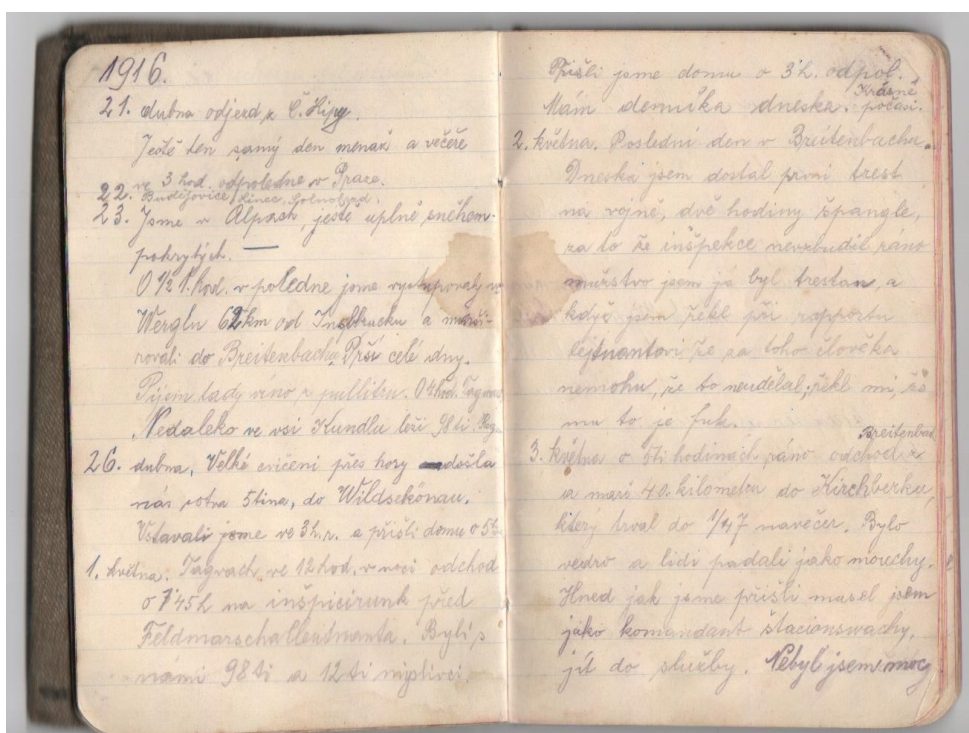 1916.
21. dubna odjezd z Č. Lípy.
Ještě ten samý den menaž a večeře
ve 3 hod. odpoledne v Praze.
22. Budějovice, Linec, Solnohrad.
23. Jsme v Alpách, jestě uplně sněhem
pokrytých.
O 1/2 1. hod. v poledne jsme vystupovali v
Wörglu 62 km od Insbrucku a maší-
rovali do Breitenbachu. Prší celé dny.
Pijem tady víno z pullitru. O 4 hod. Tagwa
Nedaleko ve vsi Kundlu leží 98 ti
26. dubna, Velké cvičení přes hory došla
nás sotva 5tina, do Wildschönau.
Vstavali jsme ve 3 h. r. a přišli domu o 5ti
1. května. Tagvach ve 12 hod. v noci odchod
o 1 45 h na inšpicirunk před
Feldmarschalleutnanta. Byli s
námi 98 ti a 12 ti
Přišli jsme domu o 3 h. odpol.
Mám denníka dneska. Krásné počasí.
2. května. Poslední den v Breitenbachu.
Dneska jsem dostal první trest
na vojně, dvě hodiny špangle,
za to že inšpekce nevzbudil ráno
mužstvo jsem já byl trestan, a
když jsem řekl při rapportu
lejtnantovi že za toho člověka
nemohu, že to neudělal, řekl mi, že
mu to je fuk.
3. května o 5ti hodinách ráno odchod z Breitenbach
a marš 40. kilometrů do Kirchberku,
který trval do 1/4 7 navečer. Bylo
vedro a lidi padali jako mouchy.
Hned jak jsme přišli musel jsem
jako komandant štacionswachy,
jít do služby. Nebyl jsem moc